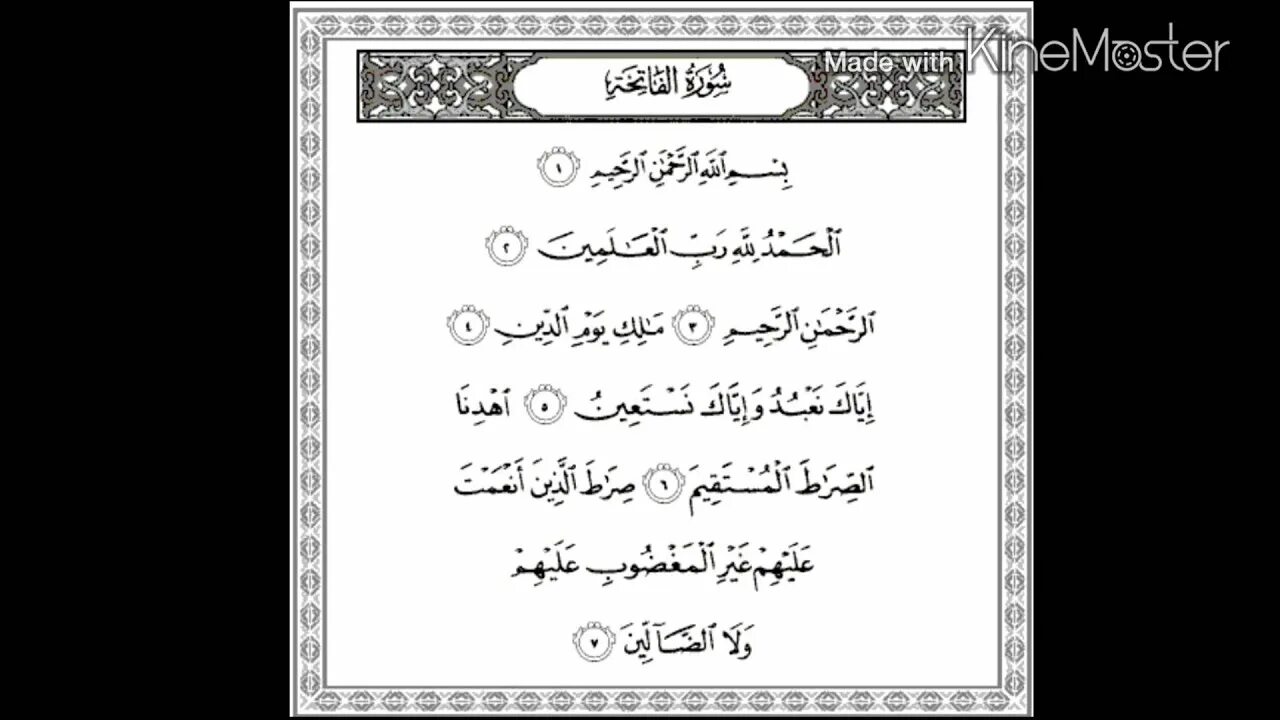 Made with KineMaster
سُورَةُ الفَاتِحَةِ
بِسْمِ ٱللَّهِ ٱلرَّحْمَٰنِ ٱلرَّحِيمِ ١
ٱلْحَمْدُ لِلَّهِ رَبِّ ٱلْعَٰلَمِينَ ٢
ٱلرَّحْمَٰنِ ٱلرَّحِيمِ ٣ مَٰلِكِ يَوْمِ ٱلدِّينِ ٤
إِيَّاكَ نَعْبُدُ وَإِيَّاكَ نَسْتَعِينُ ٥ ٱهْدِنَا
ٱلصِّرَٰطَ ٱلْمُسْتَقِيمَ ٦ صِرَٰطَ ٱلَّذِينَ أَنْعَمْتَ
عَلَيْهِمْ غَيْرِ ٱلْمَغْضُوبِ عَلَيْهِمْ
وَلَا ٱلضَّآلِّينَ ٧